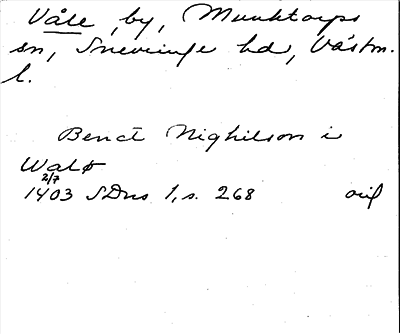 Våle by, Munktorps
sn, Snevringe hd, Västm.
l.
Benct Nighilson i
Walø
2/7
1403 SDns 1, s. 268 oid